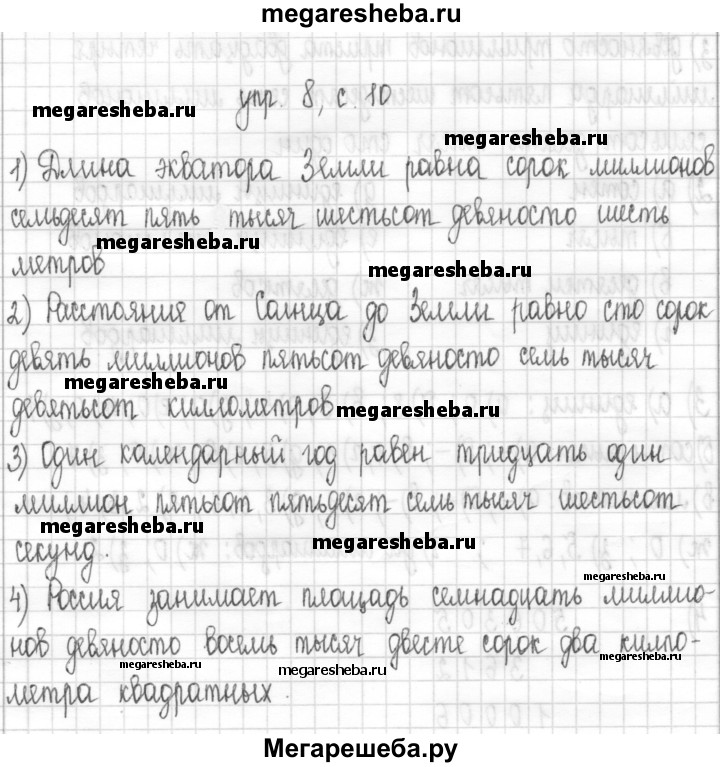 megaresheba.ru
упр. 8, с. 10
megaresheba.ru
megaresheba.ru
1) Длина экватора Земли равна сорок миллионов
семьдесят пять тысяч шестьсот девяносто шесть
megaresheba.ru
метров
megaresheba.ru
2) Расстояния от Солнца до Земли равно сто сорок
девять миллионов пятьсот девяносто семь тысяч
megaresheba.ru
девятьсот километров
megaresheba.ru
3) Один календарный год равен тридцать один
миллион пятьсот пятьдесят семь тысяч шестьсот
megaresheba.ru
секунд.
megaresheba.ru
megaresheba.ru
4) Россия занимает площадь семнадцать миллио-
нов девяносто восемь тысяч двесте сорок два кило-
megaresheba.ru
megaresheba.ru
megaresheba.ru
метра квадратных.
Мегарешеба.ру